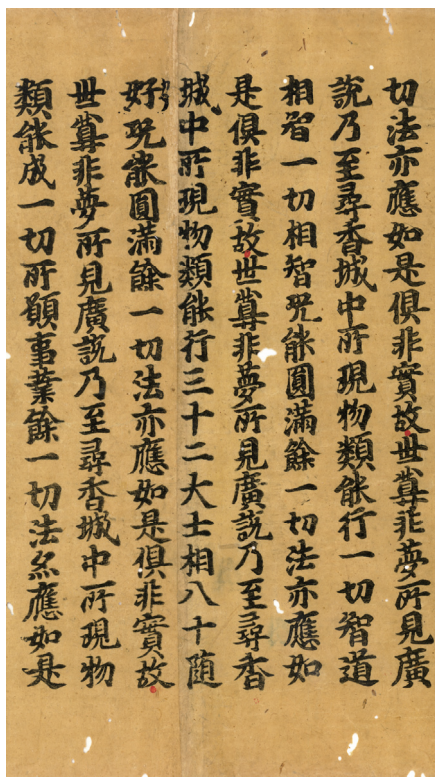 切法亦應如是俱非實故世尊非夢所見廣
說乃至尋香城中所現物類能行一切智道
相智一切相智況能圓滿餘一切法亦應如
是俱非實故世尊非夢所見廣說乃至尋香
城中所現物類能行三十二大士相八十随
好況能圓滿餘一切法亦應如是俱非實故
世尊非夢所見廣說乃至尋香城中所現物
類能成一切所願事業餘一切法亦應如是